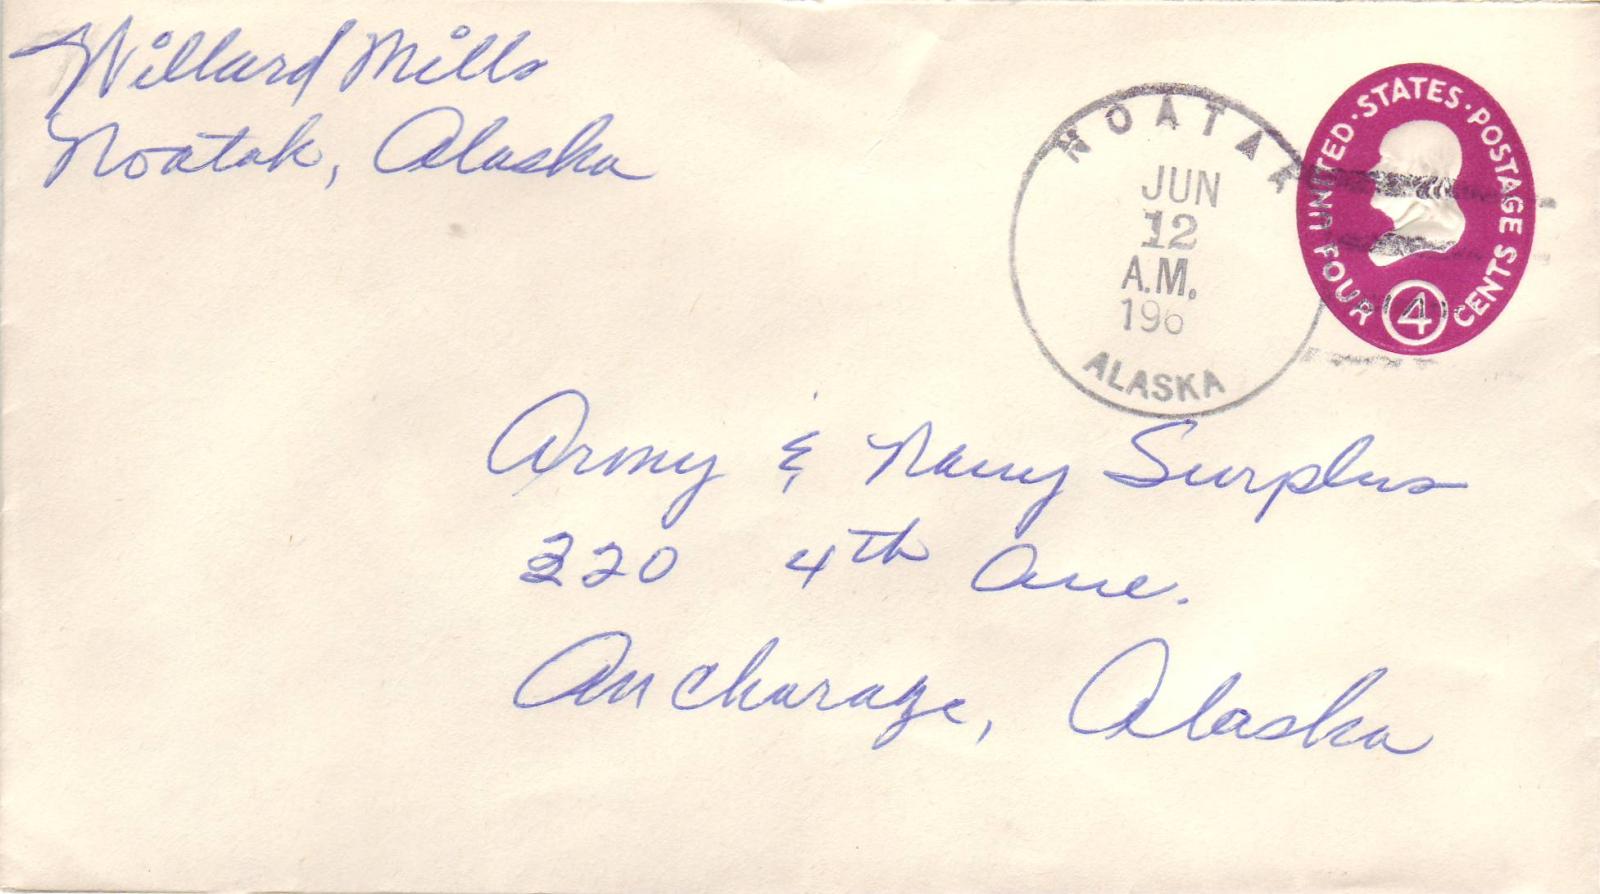 Willard Mills
Noatak, Alaska
NOATAK
JUN
12
A.M.
196
ALASKA
UNITED · STATES · POSTAGE
FOUR 4 CENTS
Army & Navy Surplus
320 4th Ave.
Anchorage, Alaska